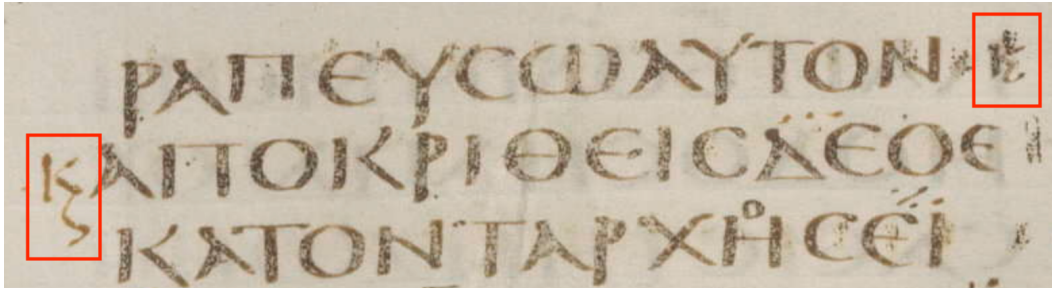 ΡΑΠΕΥϹΩΑΥΤΟΝ ϗ
ϗ ΑΠΟΚΡΙΘΕΙϹΔΕΟΕ
ΚΑΤΟΝΤΑΡΧΗϹΕΙ